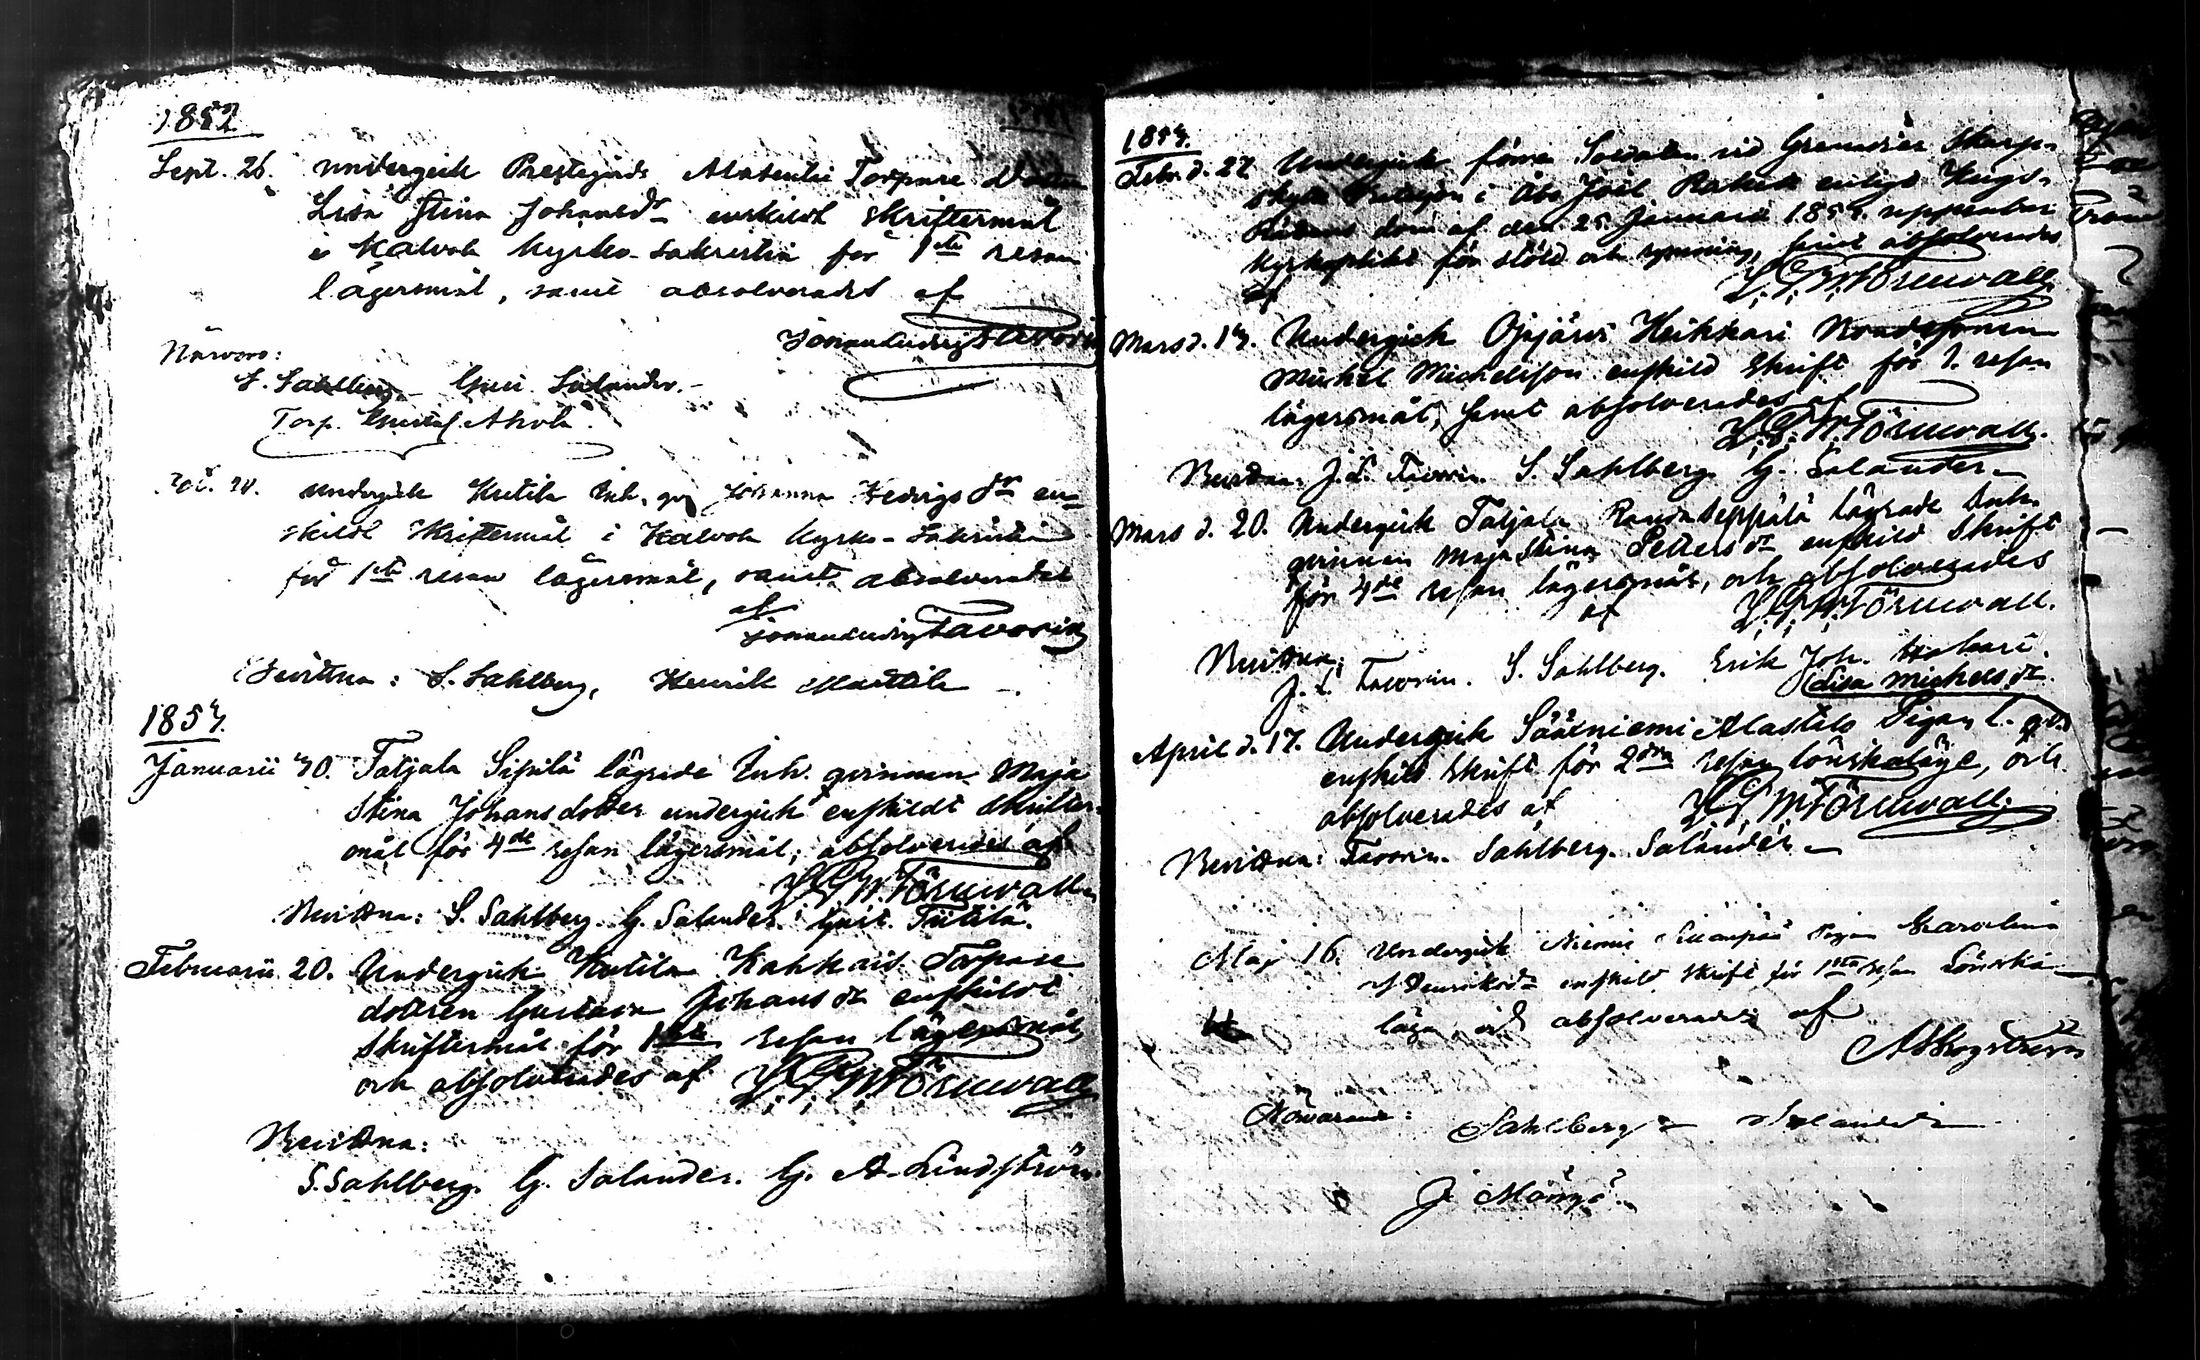 1852
Sept. 26. undergick Prestegårds Alatentu Torpare Dottern
Lisa Stina Johansdr enskildt skriftermål
i Kalvola Kyrko-Sakristia för 1sta resan
lägersmål, samt absolverades af
Johan Ludvig Favorin
Närvoro:
S. Sahlberg Gust. Salander.
Torp. Gustaf Ahola
Oct. undergick Kutila Inh. qv Johanna Hedvigs dr en-
skildt skriftermål i Kalvola Kyrko-Sakristia
för 1sta resan lägersmål, samt absolverades
af
Johan Ludvig Favorin
Bevittna: S. Sahlberg, Henrik Marttila
1853.
Januarii 30. Taljala Sipilä lägrade Inh. qvinnan Maja
Stina Johansdotter undergick enskildt skrifter-
mål för 4de resan lägersmål; absolverades af
Törnwall
Bevittna: S. Sahlberg. G. Salander. Gust. Tiitilä.
Februarii 20. Undergick Kutila Kahkais Torpare
dottren Gustava Johans dr enskildt
skriftermål för 1sta resan lägersmål,
och absolverades af Törnwall
Bevittna:
S. Sahlberg. G. Salander. G. A. Lindström.
1853.
Febr. d. 27 Undergick förra Soldaten vid Grenadier Skarp-
skytte Bataljon i Åbo Joël Raket enligt Krigs-
Rättens dom af den 25 Januarii 1853 uppenbar
Kyrkoplikt för stöld och rymning, samt absolverades
af Törnwall.
Mars d. 13. Undergick Ojajärvi Heikkari Bondesonen
Michel Michelsson enskild skrift för 1. resan
lägersmål, samt absolverades af
Törnwall.
Bevittna: J. L. Favorin. S. Sahlberg. G. Salander.
Mars d. 20. Undergick Taljala Randa Seppälä lägrade Inh.
qvinnan Maja Stina Petters dr enskild skrift
för 4de resan lägersmål, och absolverades
af Törnwall.
Bevittna:
J. L. Favorin. S. Sahlberg. Erik Joh.
Lisa Michels dr.
April d. 17. Undergick Sääxniemi Alastalo Pigan L.
enskild skrift för 2dra resan lönskaläge, och
absolverades af Törnwall.
Bevittna: Favorin. Sahlberg. Salander.
Maj 16. Undergick Niemi Pigan Carolina
enskild skrift för 1sta resan Lönska
läge, och absolverades af
Närvarande: Sahlberg Salander
J.